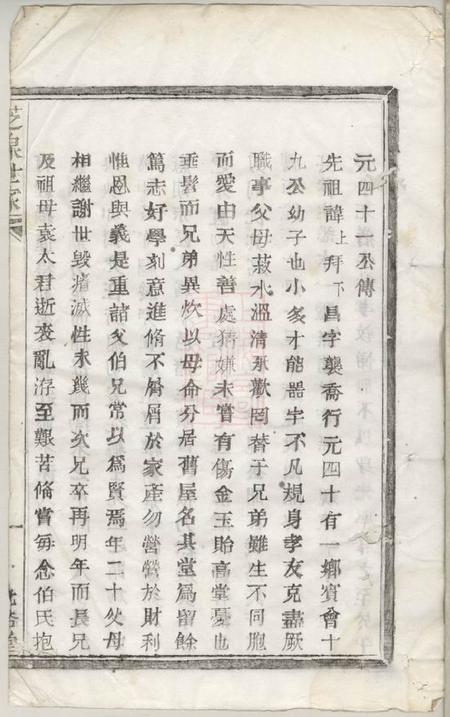 元四十一公傳
先祖諱上拜下昌字襲喬行元四十有一鄉賓曾十
九公幼子也小多才能器宇不凡規身孝友克盡厥
職事父母菽水溫清承歡罔替于兄弟雖生不同胞
而愛由天性善處猜嫌未嘗有傷金玉貽高堂憂也
垂髫而兄弟異炊以母命分居舊屋名其堂為留餘
篤志好學刻意進脩不屑屑於家產勿營營於財利
惟恩與義是重諸父伯兄常以為賢焉年二十父母
相繼謝世毀瘠滅性未幾而次兄卒再明年而長兄
及祖母袁太君逝喪亂洊至艱苦備嘗每念伯氏抱
世家
一